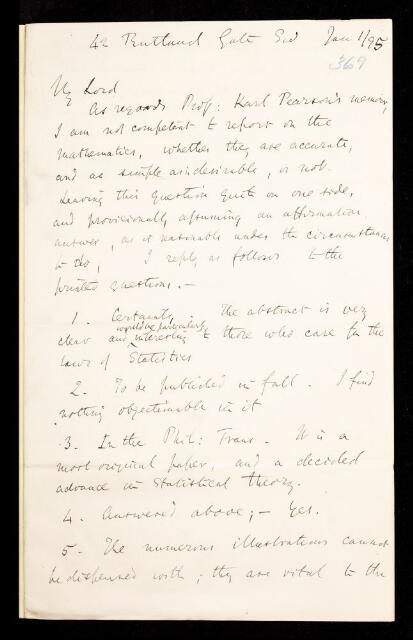 42 Rutland Gate SW Jan 1/95
369
My Lord
As regards Prof: Karl Pearson's memoir,
I am not competent to report on the
mathematics, whether they are accurate,
and as simple as is desirable, or not.
Leaving this question quite on one side,
and provisionally assuming an affirmative
answer, as is reasonable under the circumstances
to do, I reply as follows to the
printed questions.—
1. Certainly. The abstract is very
would be particularly
clear and interesting to those who care for the
laws of Statistics
2. To be published in full. I find
nothing objectionable in it
3. In the Phil: Trans. It is a
most original paper, and a decided
advance in Statistical theory.
4. Answered above;— Yes.
5. The numerous illustrations cannot
be dispensed with; they are vital to the